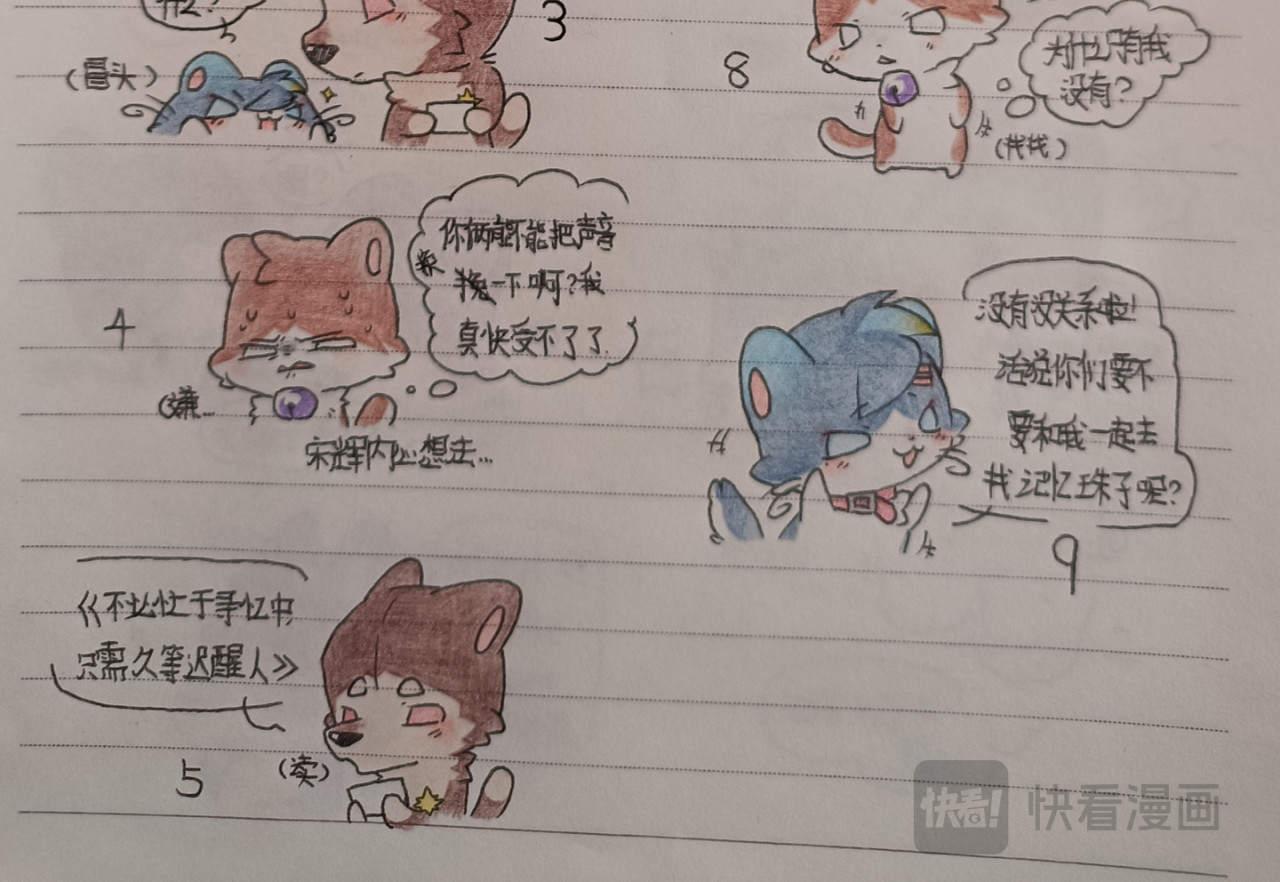 3
(冒头)
4
你俩能不能把声音
挽一下啊?我
真快受不了了.
(嫌...
宋辉内心想去...
《不必忙于寻忆中,
只需久等迟醒人》
5
8
为什么只有我
没有?
(找找)
没有没关系啦!
话说你们要不
要和我一起去
找记忆珠子呢?
9
快看!
快看漫画